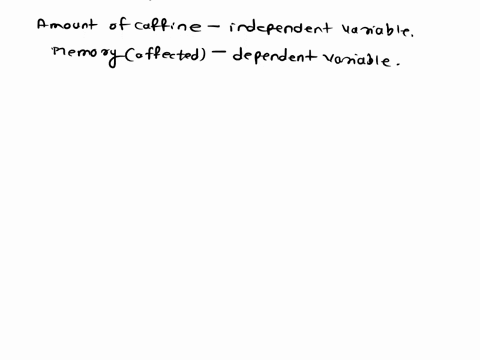 Amount of caffine - independent variable.
Memory (affected) - dependent variable.